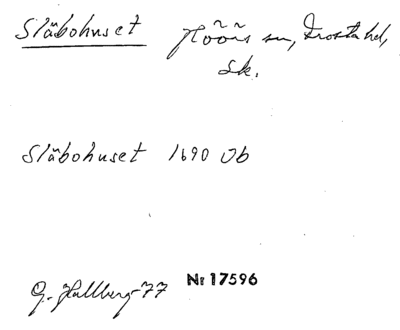 Slåbohuset Höörs sn, Frosta hd,
Sk.
Slåbohuset 1690 Jb
G. Hallberg -77 Nr 17596